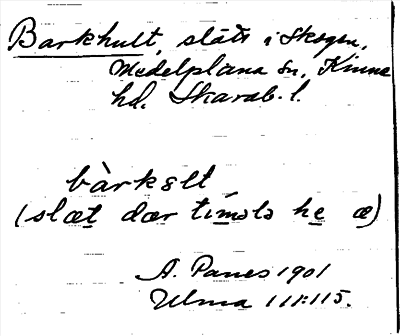 Barkhult, slätt i Skogen,
Medelplana sn, Kinne
hd. Skarab. l.
bàrkɛlt
(slæt dær tīmələ he æ)
A. Panes 1901
Ulma 111:115.